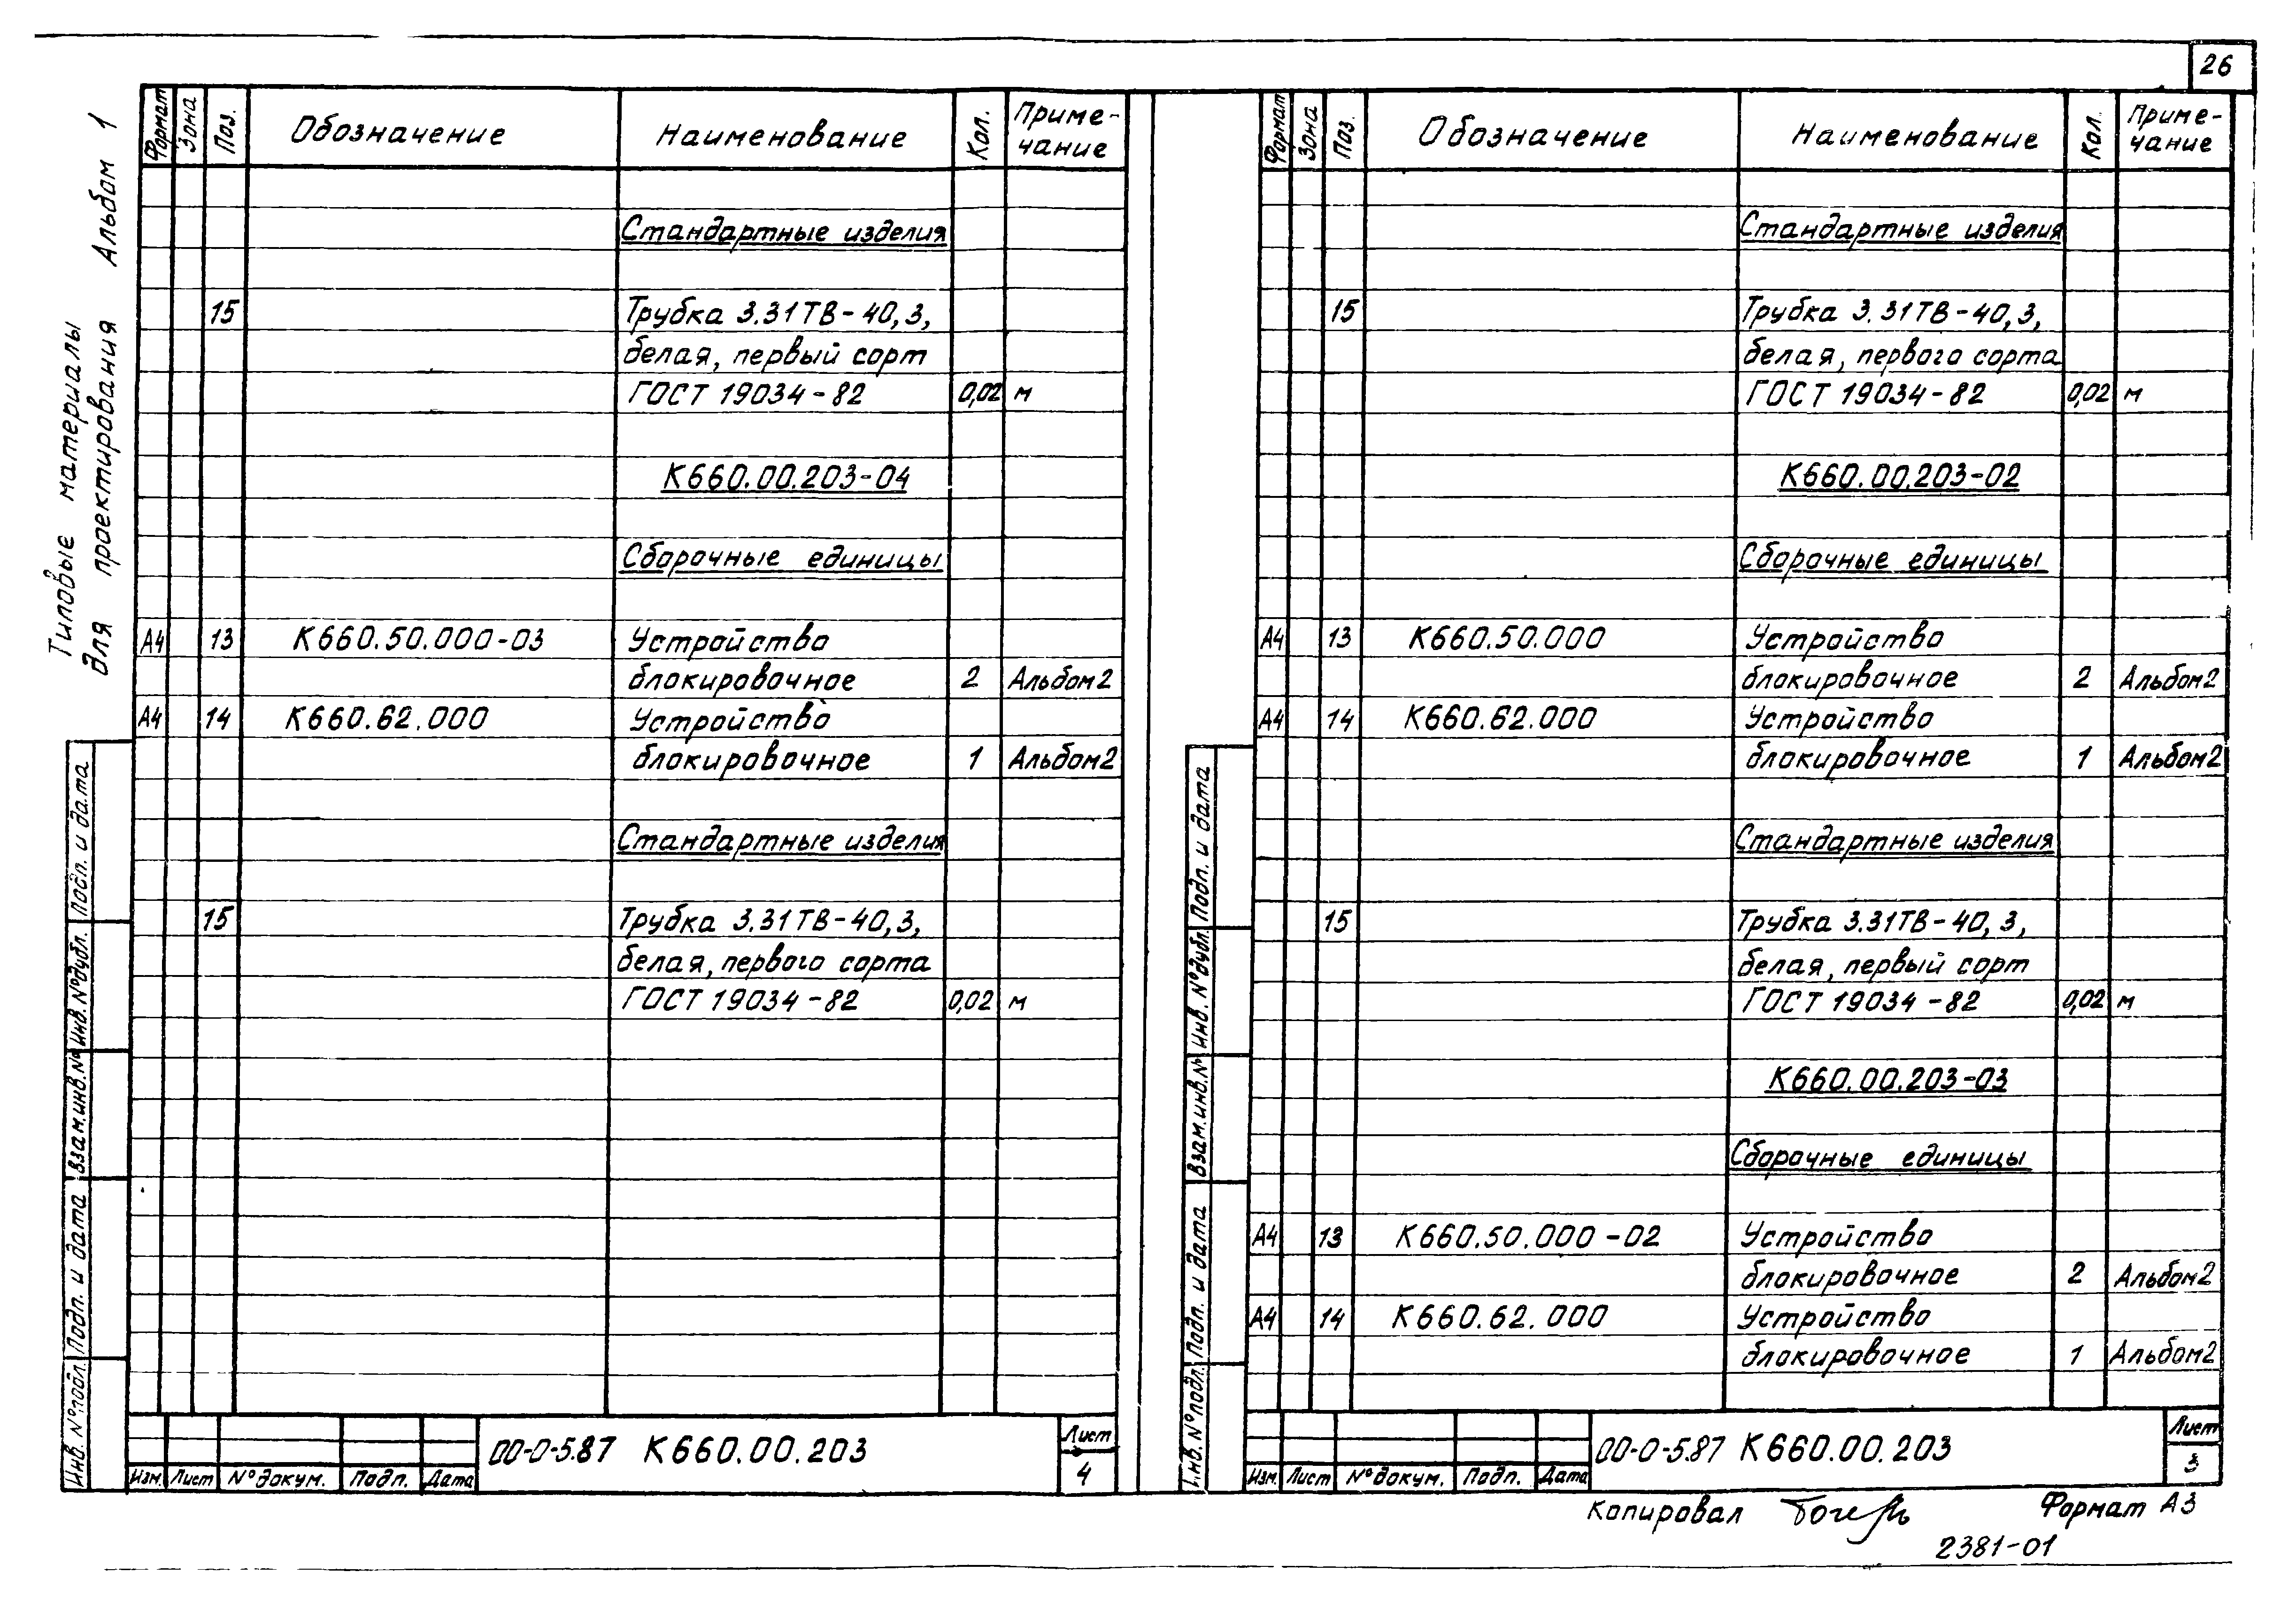 26
Типовые материалы
для проектирования Альбом 1
Формат Зона Поз. Обозначение Наименование Кол. Приме-
чание
Стандартные изделия
15 Трубка 3.31ТВ-40,3,
белая, первый сорт
ГОСТ 19034-82 0,02 м
К660.00.203-04
Сборочные единицы
А4 13 К660.50.000-03 Устройство
блокировочное 2 Альбом2
А4 14 К660.62.000 Устройство
блокировочное 1 Альбом2
Стандартные изделия
15 Трубка 3.31ТВ-40,3,
белая, первого сорта
ГОСТ 19034-82 0,02 м
Инв. № подл. Подп. и дата Взам.инв.№ Инв. № дубл. Подп. и дата
Изм. Лист № докум. Подп. Дата
00-0-5.87 К660.00.203
Лист
4
Формат Зона Поз. Обозначение Наименование Кол. Приме-
чание
Стандартные изделия
15 Трубка 3.31ТВ-40,3,
белая, первого сорта
ГОСТ 19034-82 0,02 м
К660.00.203-02
Сборочные единицы
А4 13 К660.50.000 Устройство
блокировочное 2 Альбом2
А4 14 К660.62.000 Устройство
блокировочное 1 Альбом2
Стандартные изделия
15 Трубка 3.31ТВ-40,3,
белая, первый сорт
ГОСТ 19034-82 0,02 м
К660.00.203-03
Сборочные единицы
А4 13 К660.50.000-02 Устройство
блокировочное 2 Альбом2
А4 14 К660.62.000 Устройство
блокировочное 1 Альбом2
Инв. № подл. Подп. и дата Взам.инв.№ Инв. № дубл. Подп. и дата
Изм. Лист № докум. Подп. Дата
00-0-5.87 К660.00.203
Лист
3
Копировал Формат А3
2381-01